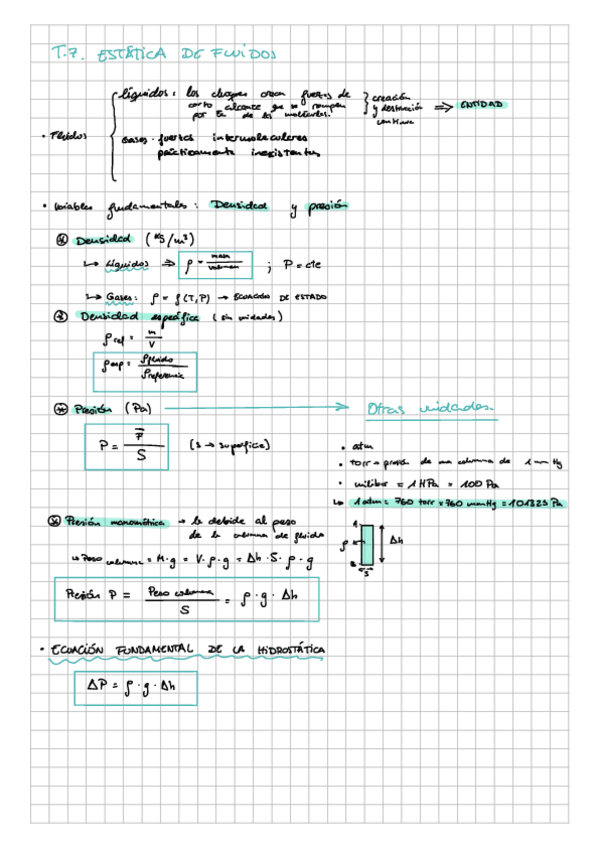 T.7. ESTÁTICA DE FLUIDOS
líquidos: los choques crean fuerzas de
corto alcance que se rompen
por Ec de las moléculas.
creación
y destrucción
continua
⇒ ENTIDAD
• Fluidos
Gases: fuerzas intermoleculares
prácticamente inexistentes
• Variables fundamentales: Densidad y presión
* Densidad (kg/m³)
↳ Líquidos ⇒ ρ = masa/volumen ; ρ = cte
↳ Gases: ρ = ρ(T,P) → ECUACIÓN DE ESTADO
* Densidad específica (sin unidades)
ρref = m/V
ρesp = ρfluido/ρreferencia
* Presión (Pa) → Otras unidades
P = F/S (S → superficie)
• atm
• torr → presión de una columna de 1 mm Hg
• milibar = 1 HPa = 100 Pa
↳ 1 atm = 760 torr = 760 mmHg = 101325 Pa
* Presión manométrica → la debida al peso
de la columna de fluido
↳ Peso columna = M·g = V·ρ·g = Δh·S·ρ·g
ρ Δh
S
Presión P = Peso columna/S = ρ·g·Δh
• ECUACIÓN FUNDAMENTAL DE LA HIDROSTÁTICA
ΔP = ρ·g·Δh